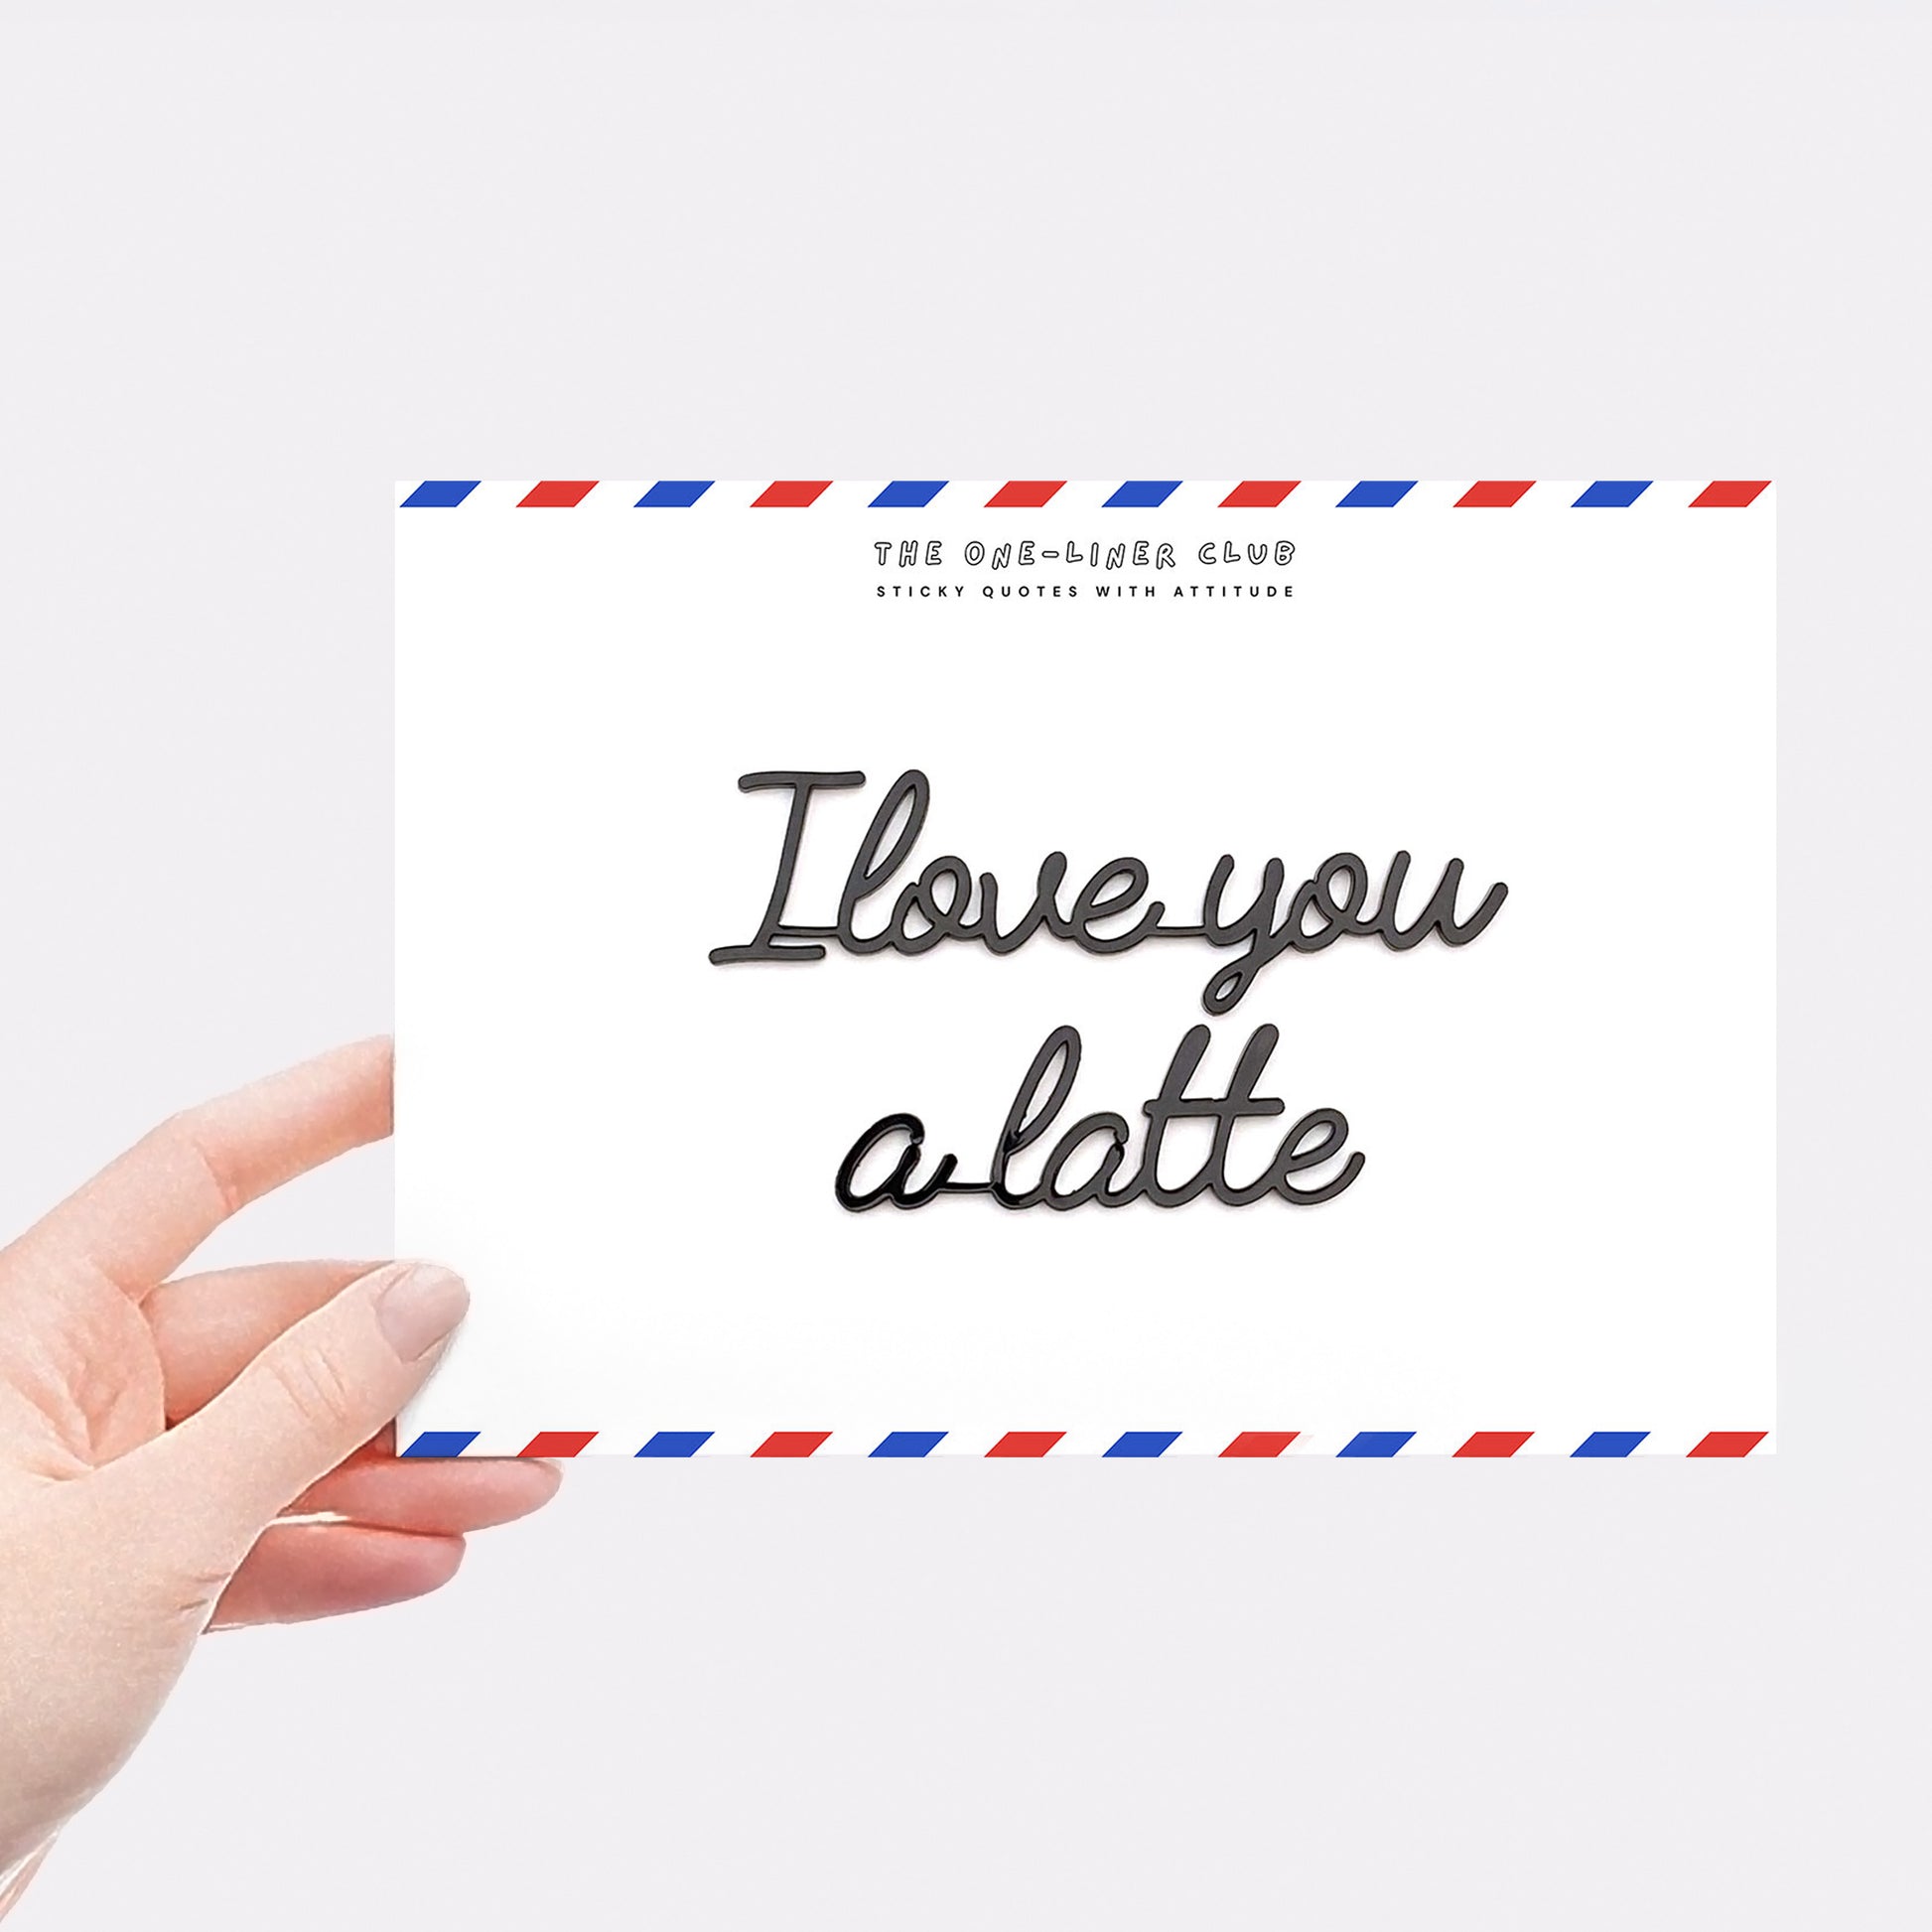 THE ONE-LINER CLUB
STICKY QUOTES WITH ATTITUDE
I love you
a latte